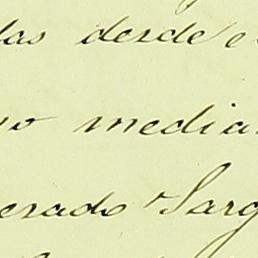 las desde e
no media
erado Sarg